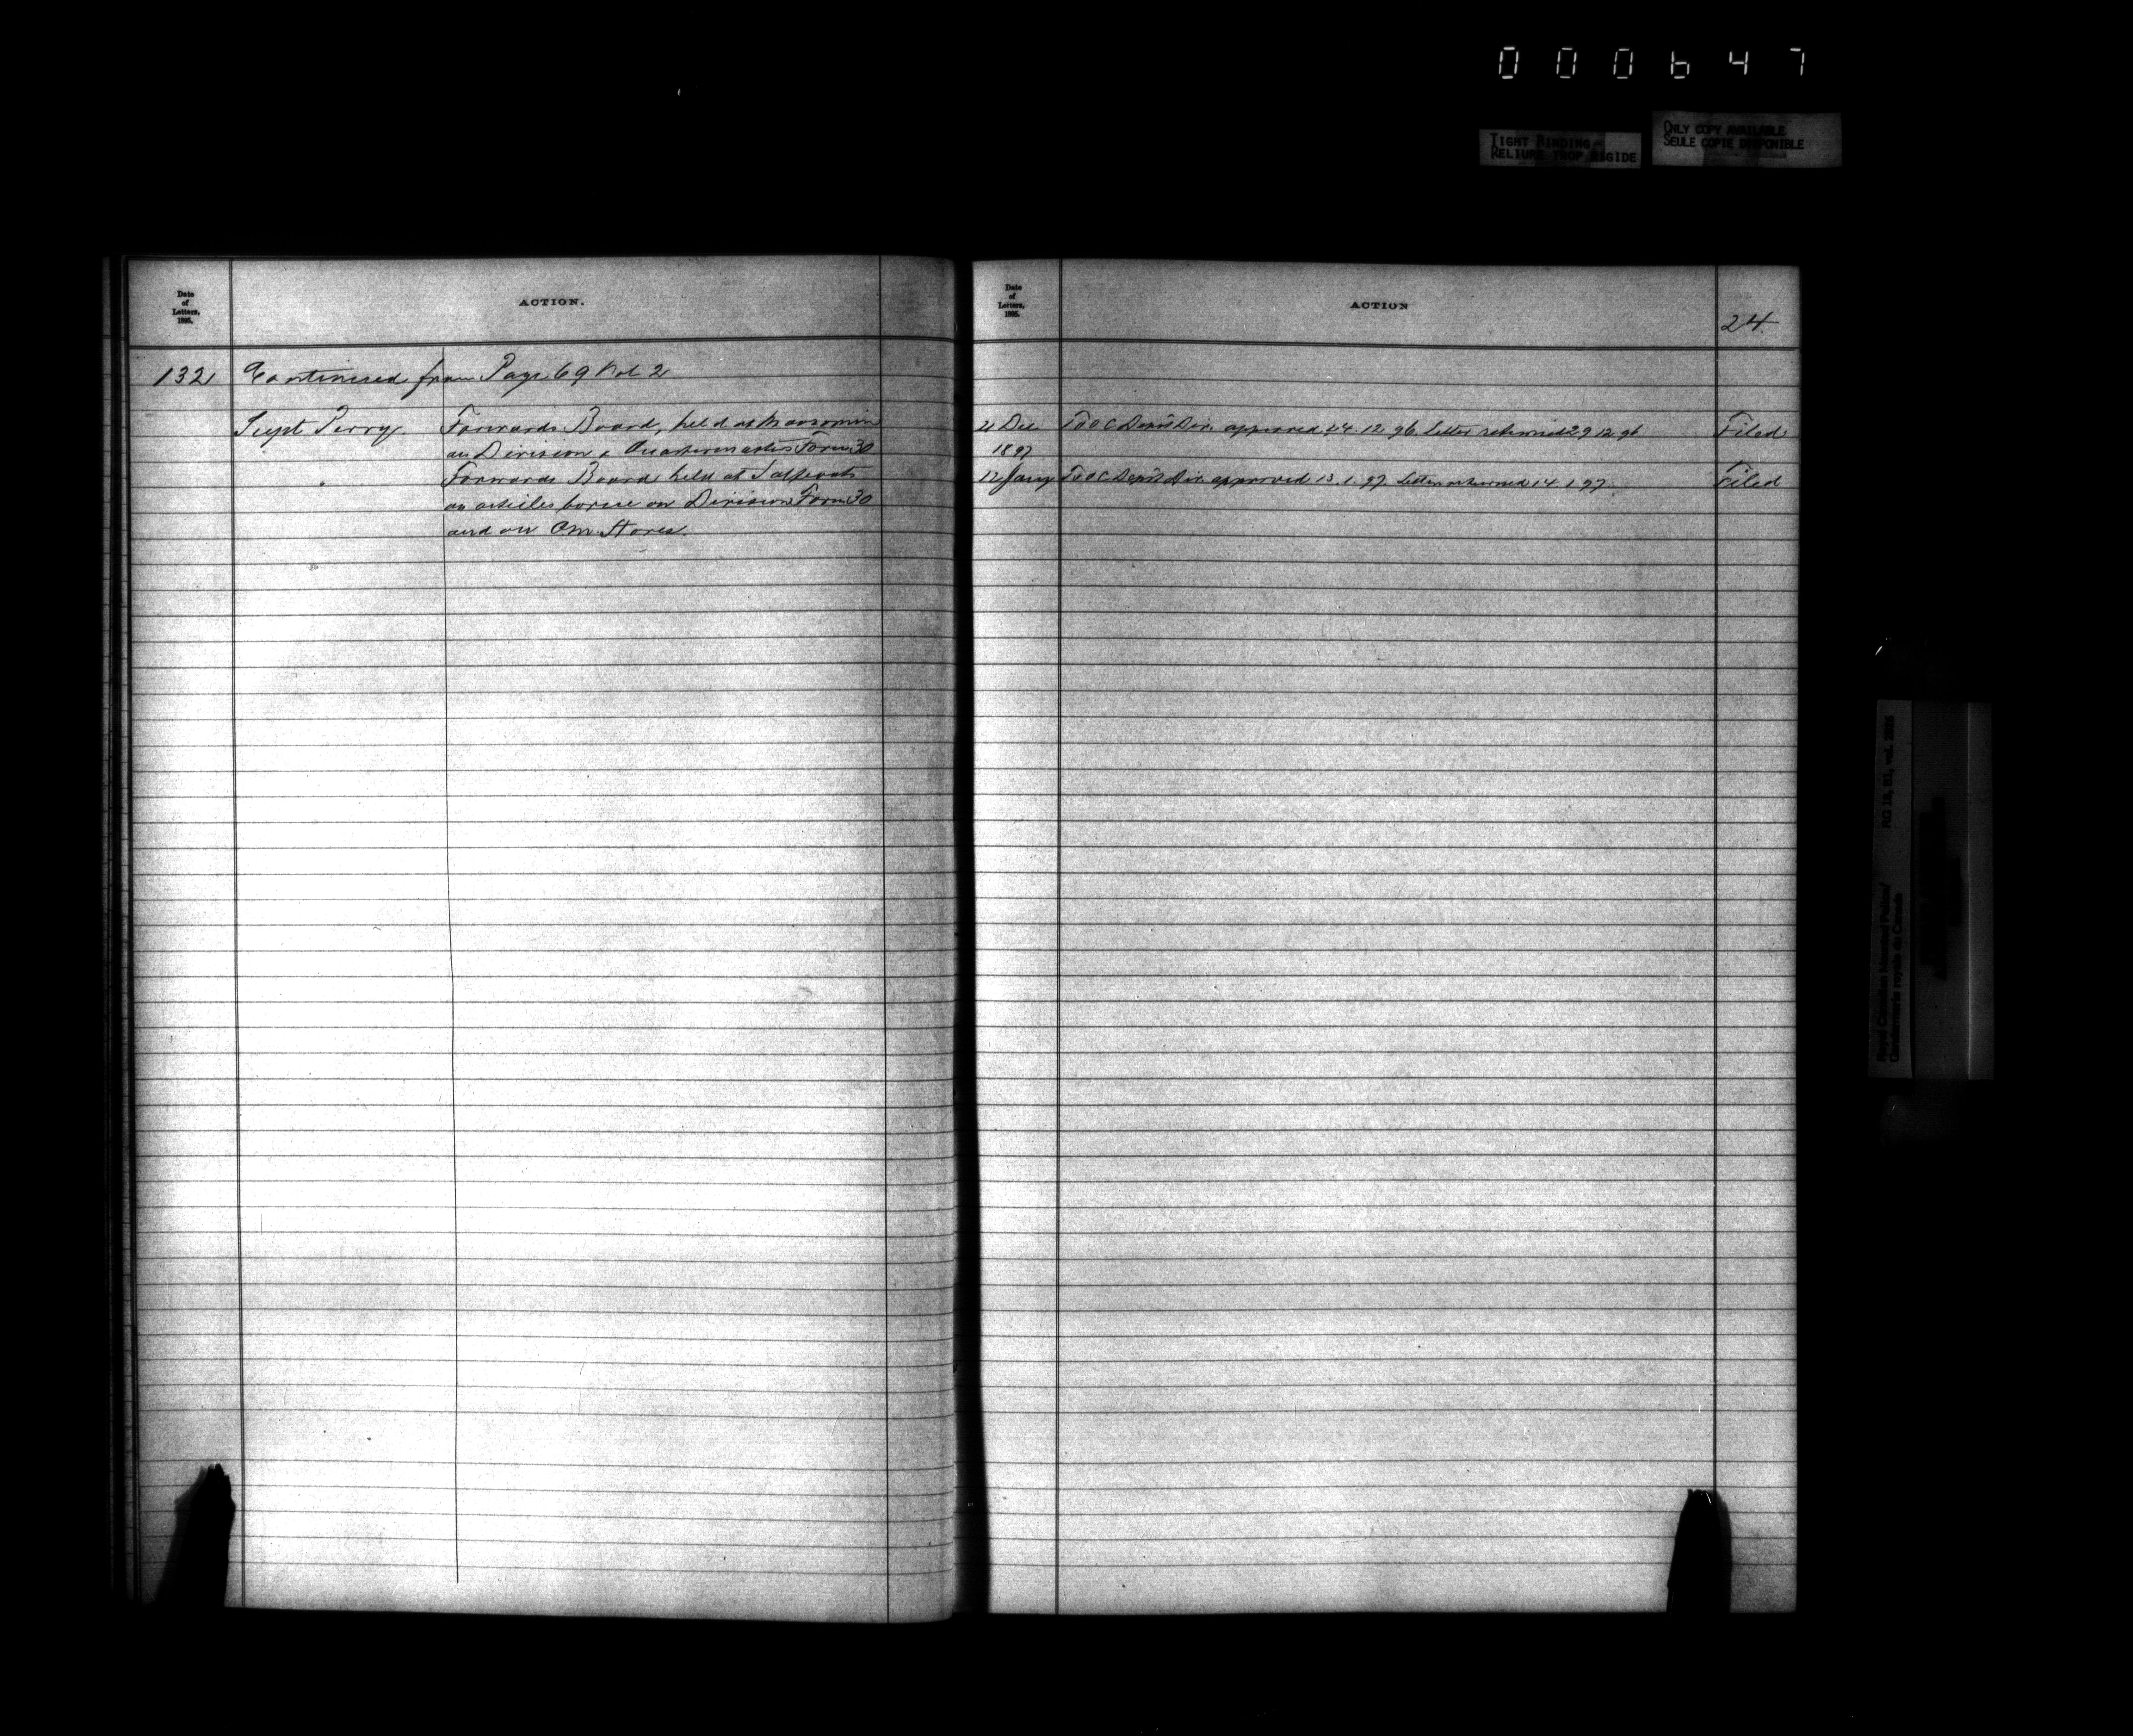 000647
TIGHT BINDING
RELIURE TROP RIGIDE
ONLY COPY AVAILABLE
SEULE COPIE DISPONIBLE
Date
of
Letters,
1895.
ACTION.
132
Continued from Page 69 Vol 2
Supt Perry. Forwards Board, held at Moosomin
on Division & Quartermasters Form 30
" Forwards Board held at Saltcoats
on articles borne on Division Form 30
and on Qm Stores.
Date
of
Letters,
1895.
ACTION
24
21 Dec To O C Depot Div. approved 24.12.96. Letter returned 29 12 96 Filed
1897
12 Jany To O C Depot Div. approved 13.1.97. Letter returned 14.1.97 Filed
RG 18, B1, vol.
Royal Canadian Mounted Police/
Gendarmerie royale du Canada